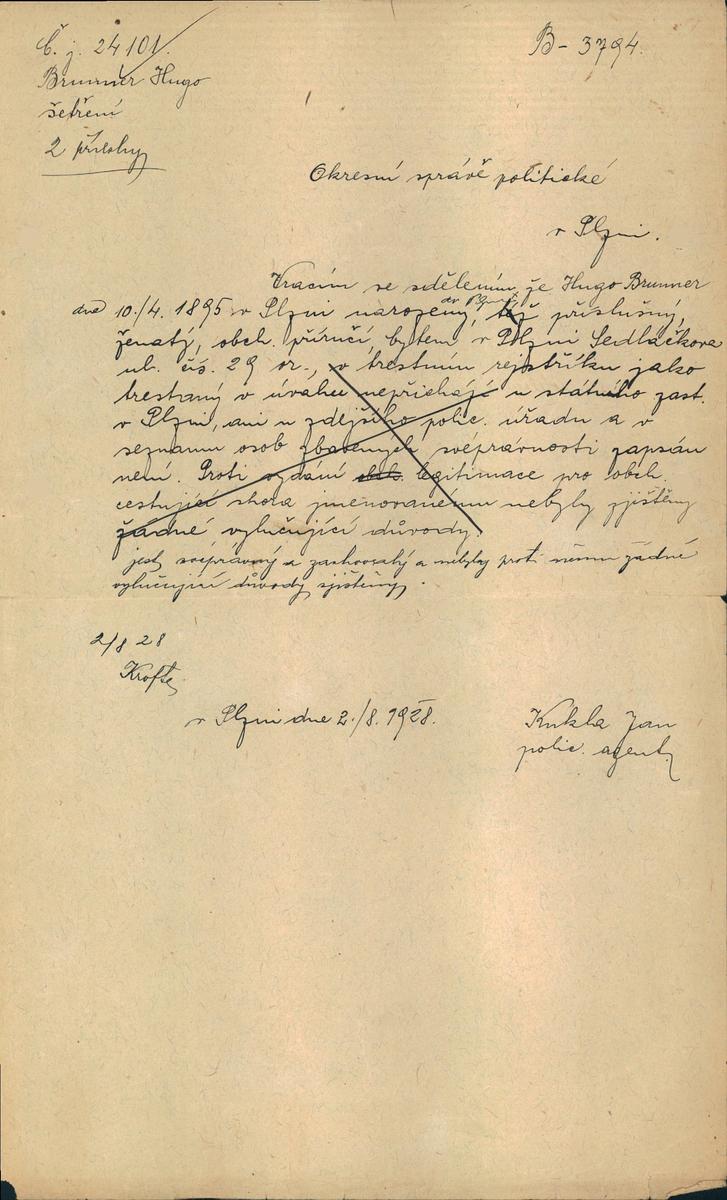 Č. j. 24101.
B - 3794.
Brunner Hugo
šetření
2 přílohy
Okresní správě politické
v Plzni.
Vracím se sdělením, že Hugo Brunner
dne 10./4. 1895 v Plzni narozený, do Plzně též příslušný,
ženatý, obch. příručí, bytem v Plzni Sedláčkova
ul. čís. 29 or., v trestním rejstříku jako
trestaný v úvahu nepřichází u státního zast.
v Plzni, ani u zdejšího polic. úřadu a v
seznamu osob zbavených svéprávnosti zapsán
není. Proti vydání obch. legitimace pro obch.
cestující shora jmenovanému nebyly zjištěny
žádné vylučující důvody.
jest svéprávný a zachovalý a nebyly proti němu žádné
vylučující důvody zjištěny.
2/8 28
v Plzni dne 2./8. 1928.
Kukla Jan
polic. agent